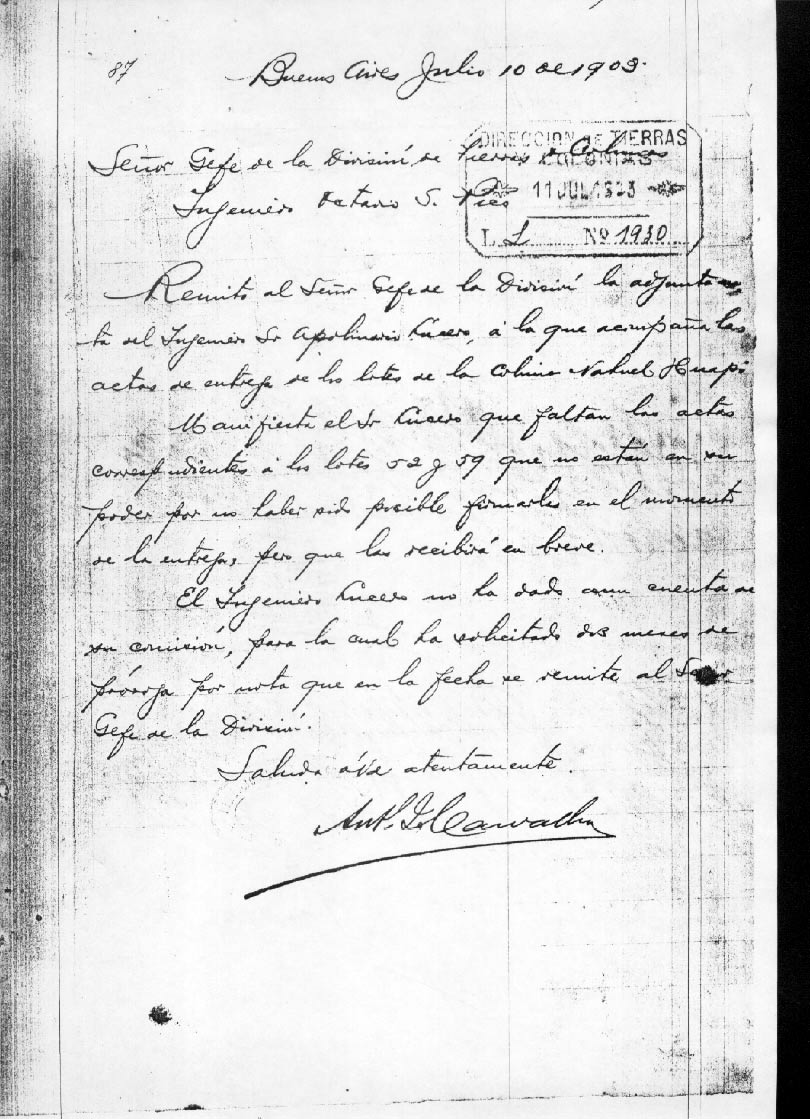 87
Buenos Aires Julio 10 de 1903.
DIRECCION de TIERRAS
Y COLONIAS
11 JUL 1903
L. L Nº 1930
Señor Gefe de la División de Tierras y Colonias
Ingeniero Octavio S. Pico
Remito al Señor Gefe de la División la adjunta no-
ta del Ingeniero Sr Apolinario Lucero, á la que acompaña las
actas de entrega de los lotes de la Colonia Nahuel Huapí
Manifiesta el Sr Lucero que faltan las actas
correspondientes á los lotes 52 y 59 que no están en su
poder por no haber sido posible firmarlas en el momento
de la entrega, pero que las recibirá en breve.
El Ingeniero Lucero no ha dado aun cuenta de
su comisión, para la cual ha solicitado dos meses de
próroga por nota que en la fecha se remite al Señor
Gefe de la División.
Saluda á Vd atentamente.
Carvalho